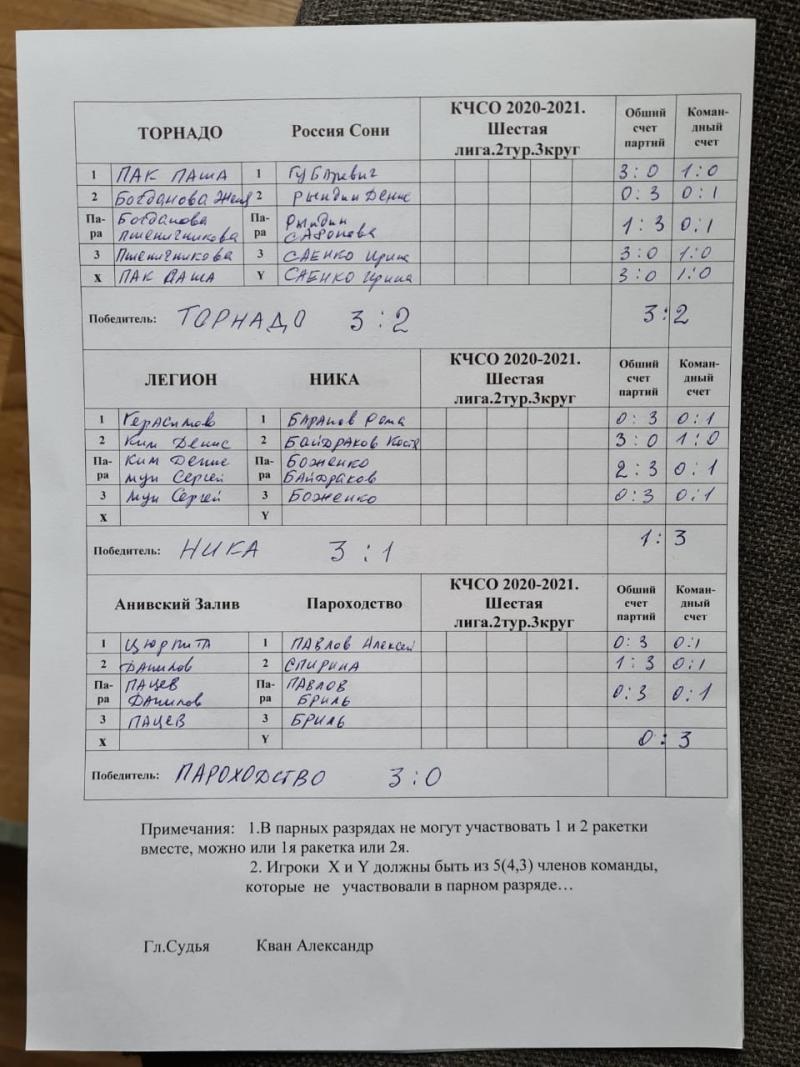 ТОРНАДО Россия Сони КЧСО 2020-2021. Шестая лига.2тур.3круг Обший счет партий Коман-дный счет
1 ПАК ПАША 1 3:0 1:0
2 Богданова Женя 2 Рындин Денис 0:3 0:1
Па-ра Богданова Пшеничникова Па-ра Рындин 1:3 0:1
3 Пшеничникова 3 САЕНКО Ирина 3:0 1:0
X ПАК ПАША Y САЕНКО Ирина 3:0 1:0
Победитель: ТОРНАДО 3:2 3:2
ЛЕГИОН НИКА КЧСО 2020-2021. Шестая лига.2тур.3круг Обший счет партий Коман-дный счет
1 Герасимов 1 БАРАНОВ Рома 0:3 0:1
2 Ким Денис 2 БАЙДРАКОВ Костя 3:0 1:0
Па-ра Ким Денис Мун Сергей Па-ра БОЖЕНКО БАЙДРАКОВ 2:3 0:1
3 Мун Сергей 3 БОЖЕНКО 0:3 0:1
X Y
Победитель: НИКА 3:1 1:3
Анивский Залив Пароходство КЧСО 2020-2021. Шестая лига.2тур.3круг Обший счет партий Коман-дный счет
1 1 ПАВЛОВ Алексей 0:3 0:1
2 Данилов 2 СПИРИНА 1:3 0:1
Па-ра ПАЦЕВ Данилов Па-ра ПАВЛОВ БРИЛЬ 0:3 0:1
3 ПАЦЕВ 3 БРИЛЬ
X Y 0:3
Победитель: ПАРОХОДСТВО 3:0
Примечания: 1.В парных разрядах не могут участвовать 1 и 2 ракетки
вместе, можно или 1я ракетка или 2я.
2. Игроки X и Y должны быть из 5(4,3) членов команды,
которые не участвовали в парном разряде…
Гл.Судья Кван Александр